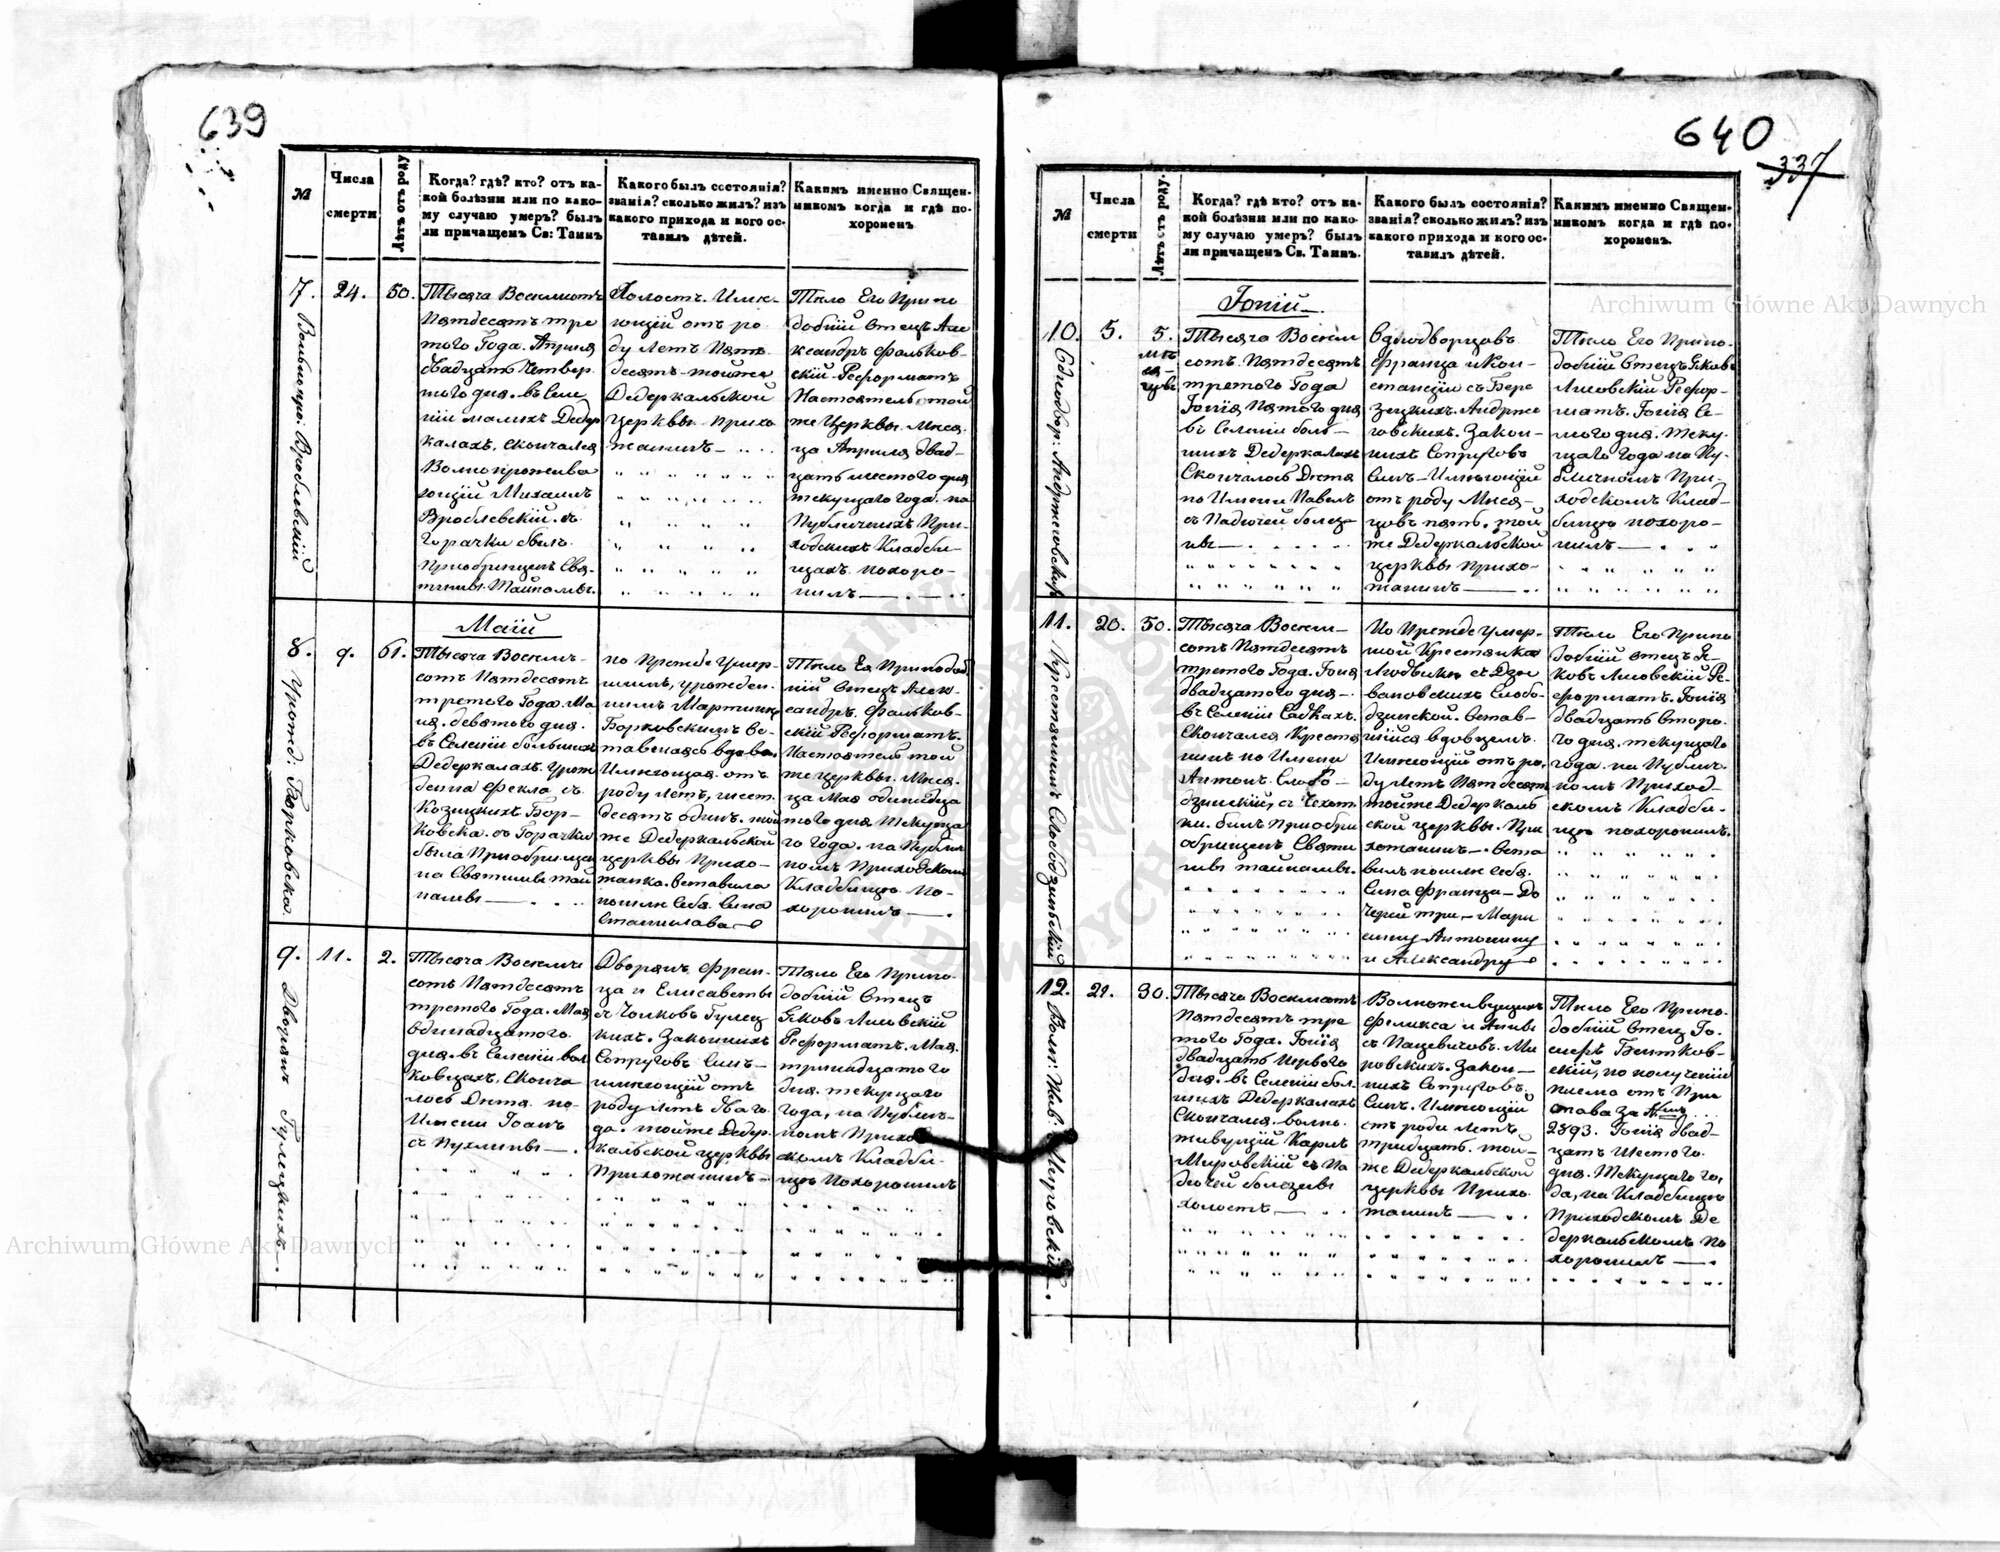 639
№
Числа
смерти
Лѣтъ отъ роду
Когда? гдѣ? кто? отъ ка-
кой болѣзни или по како-
му случаю умеръ? былъ
ли причащенъ Св: Таинъ
Какого былъ состоянія?
званія? сколько жилъ? изъ
какого прихода и кого ос-
тавилъ дѣтей.
Какимъ именно Священ-
никомъ когда и гдѣ по-
хороненъ
7.
24.
50.
Тысяча Восемьсотъ
Пятдесятъ тре
того Года. Апрѣля
двадцать Четвер
того дня. въ Селе
ніи малихъ Дедер
калахъ, скончался
Волнопрожива
ющій Михаилъ
Врублевскій. съ
Горячки былъ
Приобрищенъ Свя-
тиливы Тайнамы.
Холостъ. Имѣ-
ющій отъ ро
ду Летъ Пять
десятъ тойже
Дедеркальской
церквы Прихо
жанинъ —
Тѣло Его Припо
добній Отецъ Але
ксандръ Фальков-
скій Реформатъ
Настоятель той
же Церквы. Мѣся.
ца Априля двад-
цать шестого дня
текущаго года. на
Публичнихъ При-
ходскихъ Кладби-
щахъ. похоро-
нилъ —
Маій
8.
9.
61.
Урожд: Борковска.
Тысяча Восемъ-
сотъ Пятдесятъ
третого Года. Ма
ія. девятого дня.
въ Селеніи большихъ
Дедеркалахъ. Урож
денна Фекла съ
Козицкихъ Бор-
ковска. съ Горячки
была Приобрищен
на Святимы тай
намы —
по Прежде Умер-
шимъ, урожден.
нимъ Мартину
Борковскимъ ос-
тавшаясь вдова.
Имѣющая отъ
роду летъ, шест.
десятъ одинъ. той
же Дедеркальской
церквы Прихо-
жанка. оставила
посли себя Сина
Станислава
Тѣло Ея Приподоб
ній Отецъ Алек-
сандръ Фальков-
скій Реформатъ.
Настоятель той
же церквы. Мѣся.
ца Мая одинадца
того дня Текуща
го Года. на Публич
номъ Приходскомъ
Кладбищѣ По-
хоронилъ —
9.
11.
2.
Дворян Гулецкихъ
Тысяча Восемъ
сотъ Пятдесятъ
третого Года. Мая
одинадцатого
дня. въ Селеніи вол
ковцахъ. Сконча
лось Дитя по
Имени Іоанъ
съ Пухлины —
Дворянъ Фран-
ца и Елисаветы
съ Чолковъ Гулец
кихъ. Законнихъ
Сопруговъ Синъ —
имѣющій отъ
роду летъ Два го
да. тойже Дедер
кальской церквы
Прихожанинъ —
Тѣло Его Припо-
добній Отецъ
Яковъ Лисовскій
Реформатъ. Мая.
тринадцатого
дня. текущаго
года, на Публич-
номъ Приход
скомъ Кладби-
щѣ Похоронилъ
640
337
№
Числа
смерти
Лѣтъ отъ роду.
Когда? гдѣ? кто? отъ ка-
кой болѣзни или по како-
му случаю умеръ? былъ
ли причащенъ Св. Таинъ.
Какого былъ состоянія?
званія? сколько жилъ? изъ
какого прихода и кого ос-
тавилъ дѣтей.
Какимъ именно Священ-
никомъ когда и гдѣ по-
хороненъ.
Іюній.
10.
5.
5.
мѣ
ся-
цовъ
Тысяча Восем
сотъ Пятдесятъ
третого Года
Іюнія Пятого дня
въ Селеніи боль-
шихъ Дедеркалахъ
Скончалось Дитя
по Имени Павелъ
съ Падючей болез
ни —
Однодворцовъ
Франца и Кон-
станціи съ Бере
зецкихъ. Андрже
іовскихъ. Закон-
нихъ Сопруговъ
Синъ — Имѣющій
отъ роду Мѣся-
цовъ пять. той
же Дедеркальской
церквы Прихо-
жанинъ —
Тѣло Его Припо-
добній Отецъ Яковъ
Лисовскій Рефор-
матъ. Іюнія Се-
много дня. Теку-
щаго Года на Пу-
бличномъ При-
ходскомъ Клад-
бищѣ похоро-
нилъ —
11.
20.
50.
Крестянинъ Слободзинскій
Тысяча Восем-
сотъ Пятдесятъ
третого Года. Іюня
двадцатого дня —
въ Селеніи Садкахъ.
Скончался Крестя
нинъ по Имени
Антонъ Слобо-
дзинскій, съ Чехот
ки. билъ Приобри
обрищенъ Святи
ливы тайнамы.
По Прежде Умер-
шой Крестянка
Людвики съ Дзю
вановскихъ Слобо-
дзинской. Остав-
шійся вдовцемъ
Имѣющій отъ ро.
ду Летъ Пятдесят
тойже Дедеркаль
ской церквы. При
хожанинъ — Оста
вилъ посли себя
Сина Франца — До
Черей три, — Мари
анну Антонину
и Александру
Тѣло Его Припо
добній Отецъ Я-
ковъ Лисовскій Ре-
форматъ. Іюнія
двадцать второ.
го дня. текущаго
года на Публич.
номъ Приход-
скомъ Кладби-
щѣ похоронилъ.
12.
21.
30.
Тысяча Восемсотъ
Пятдесятъ тре
того Года. Іюнія
двадцать Первого
дня. въ Селеніи бол.
шихъ Дедеркалахъ
Скончался. волно.
живущій Карлъ
Мировскій съ Па
дючей болезни
холостъ —
Волноживущихъ
Феликса и Анны
съ Пацевичовъ. Ми
ровскихъ. Закон-
нихъ Сопруговъ.
Синъ. Имѣющій
отъ роди Летъ
тридцать. той-
же Дедеркальской
церквы Прихо.
жанинъ —
Тѣло Его Припо.
добній Отец Іо-
сифъ Бентков-
скій, по полученіи
писма отъ При
става за №мъ
2893. Іюнія двад-
цать Шестого
дня. Текущаго го,
да, на Кладбищѣ
Приходскомъ Де
деркальскомъ По
хоронилъ —
Archiwum Główne Akt Dawnych
Archiwum Główne Akt Dawnych